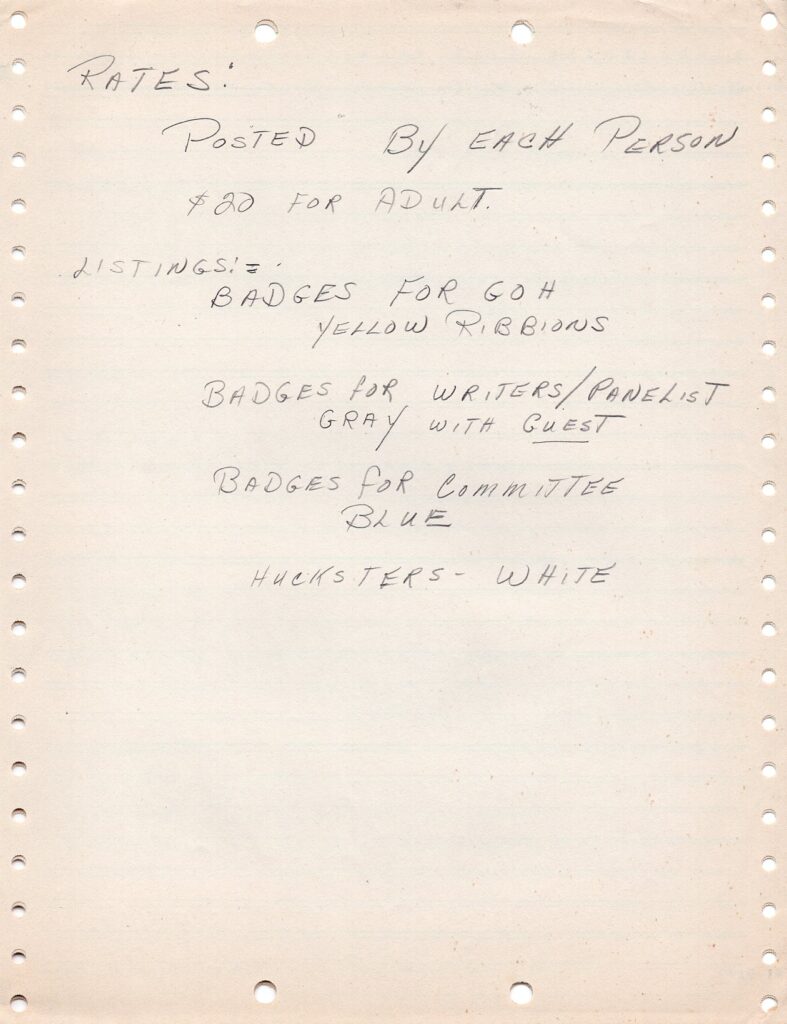 RATES:
POSTED BY EACH PERSON
$20 FOR ADULT.
LISTINGS:=
BADGES FOR GOH
YELLOW RIBBIONS
BADGES FOR WRITERS/PANELIST
GRAY WITH GUEST
BADGES FOR COMMITTEE
BLUE
HUCKSTERS- WHITE